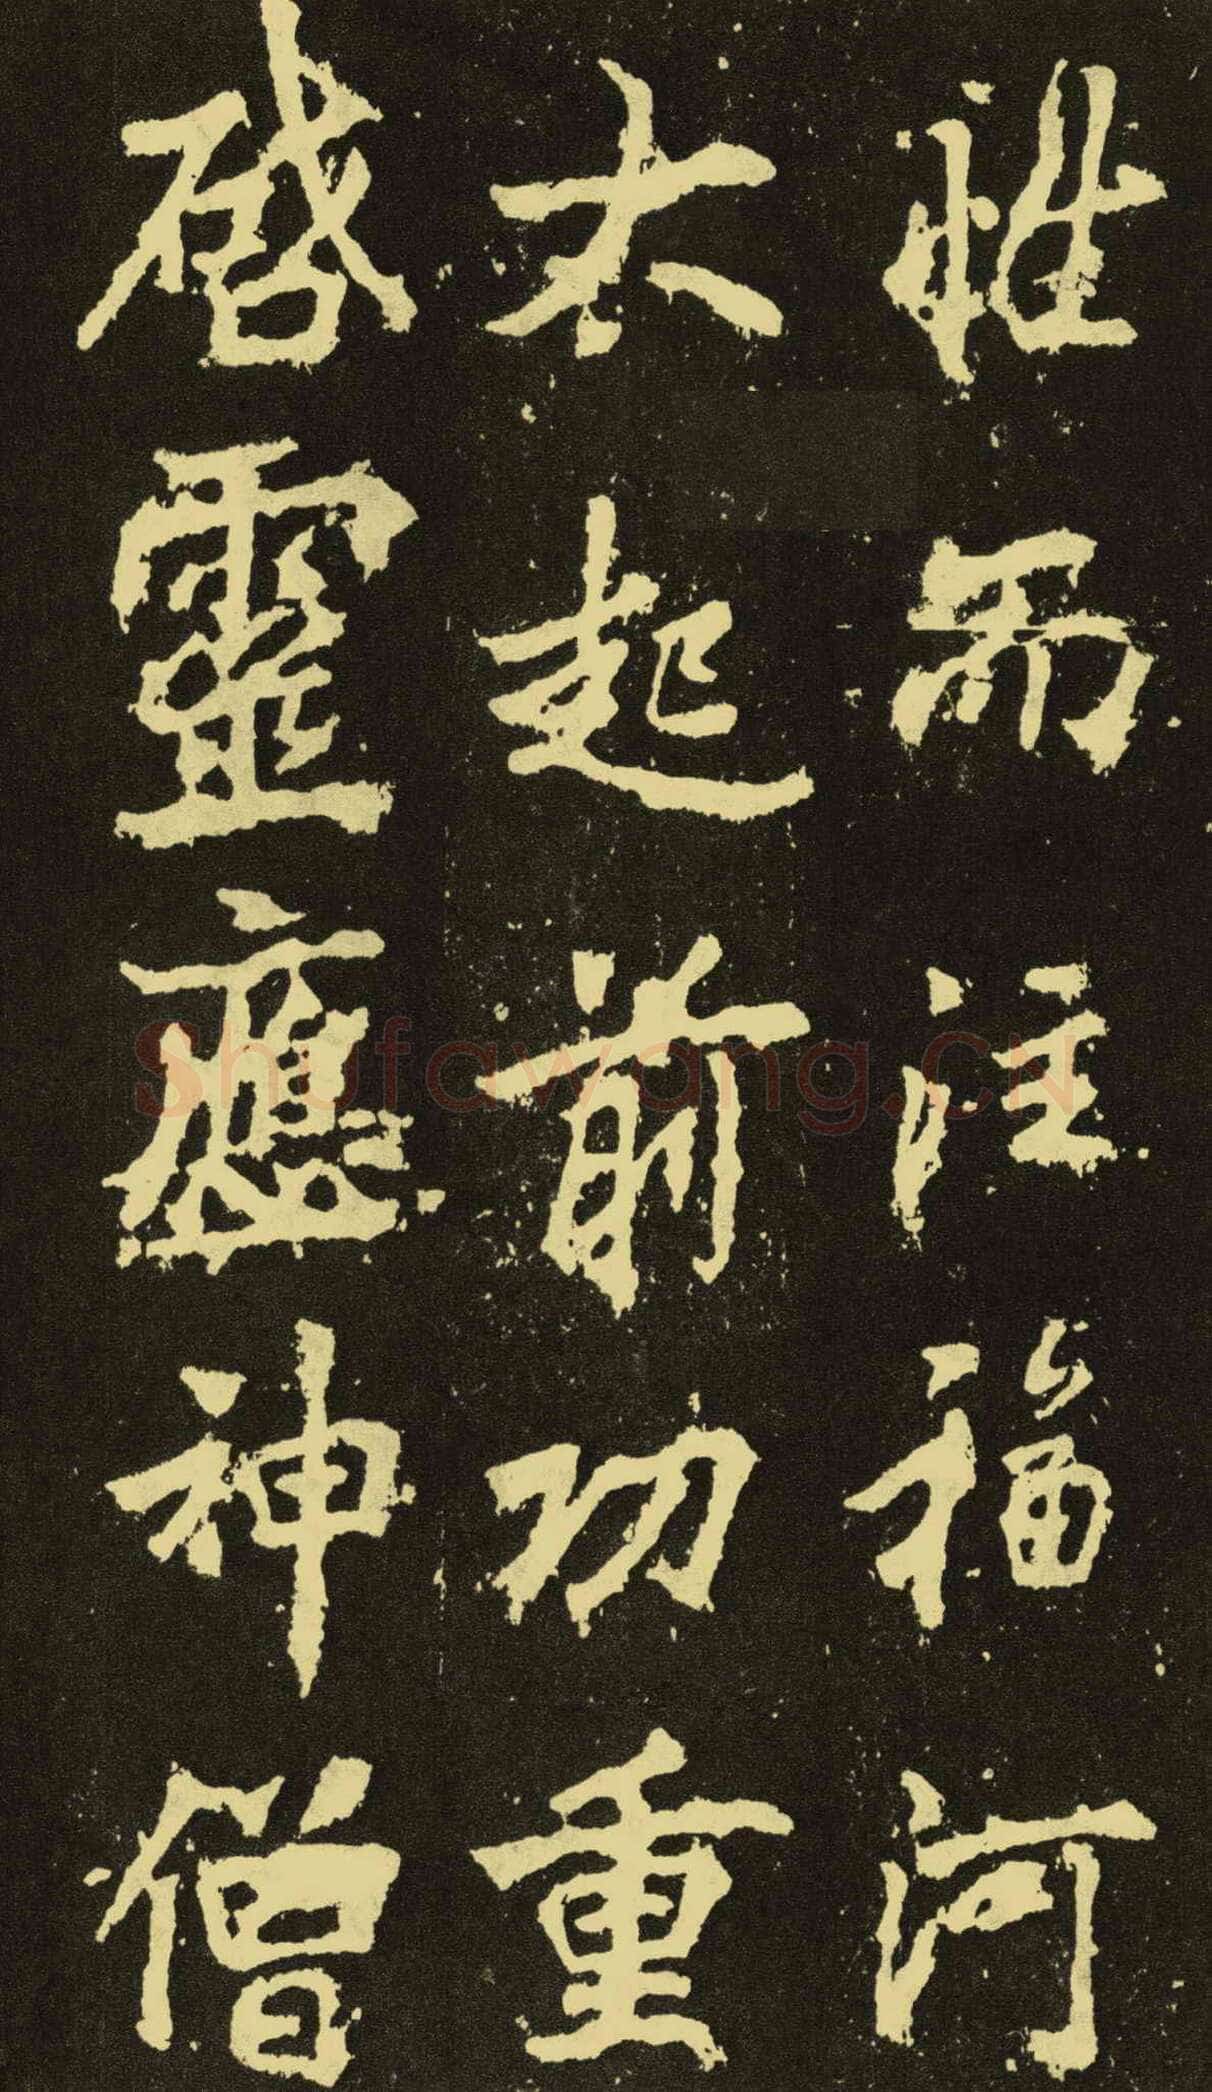 性而注福河
大起前功重
啓靈應神僧
Shufawang.CN